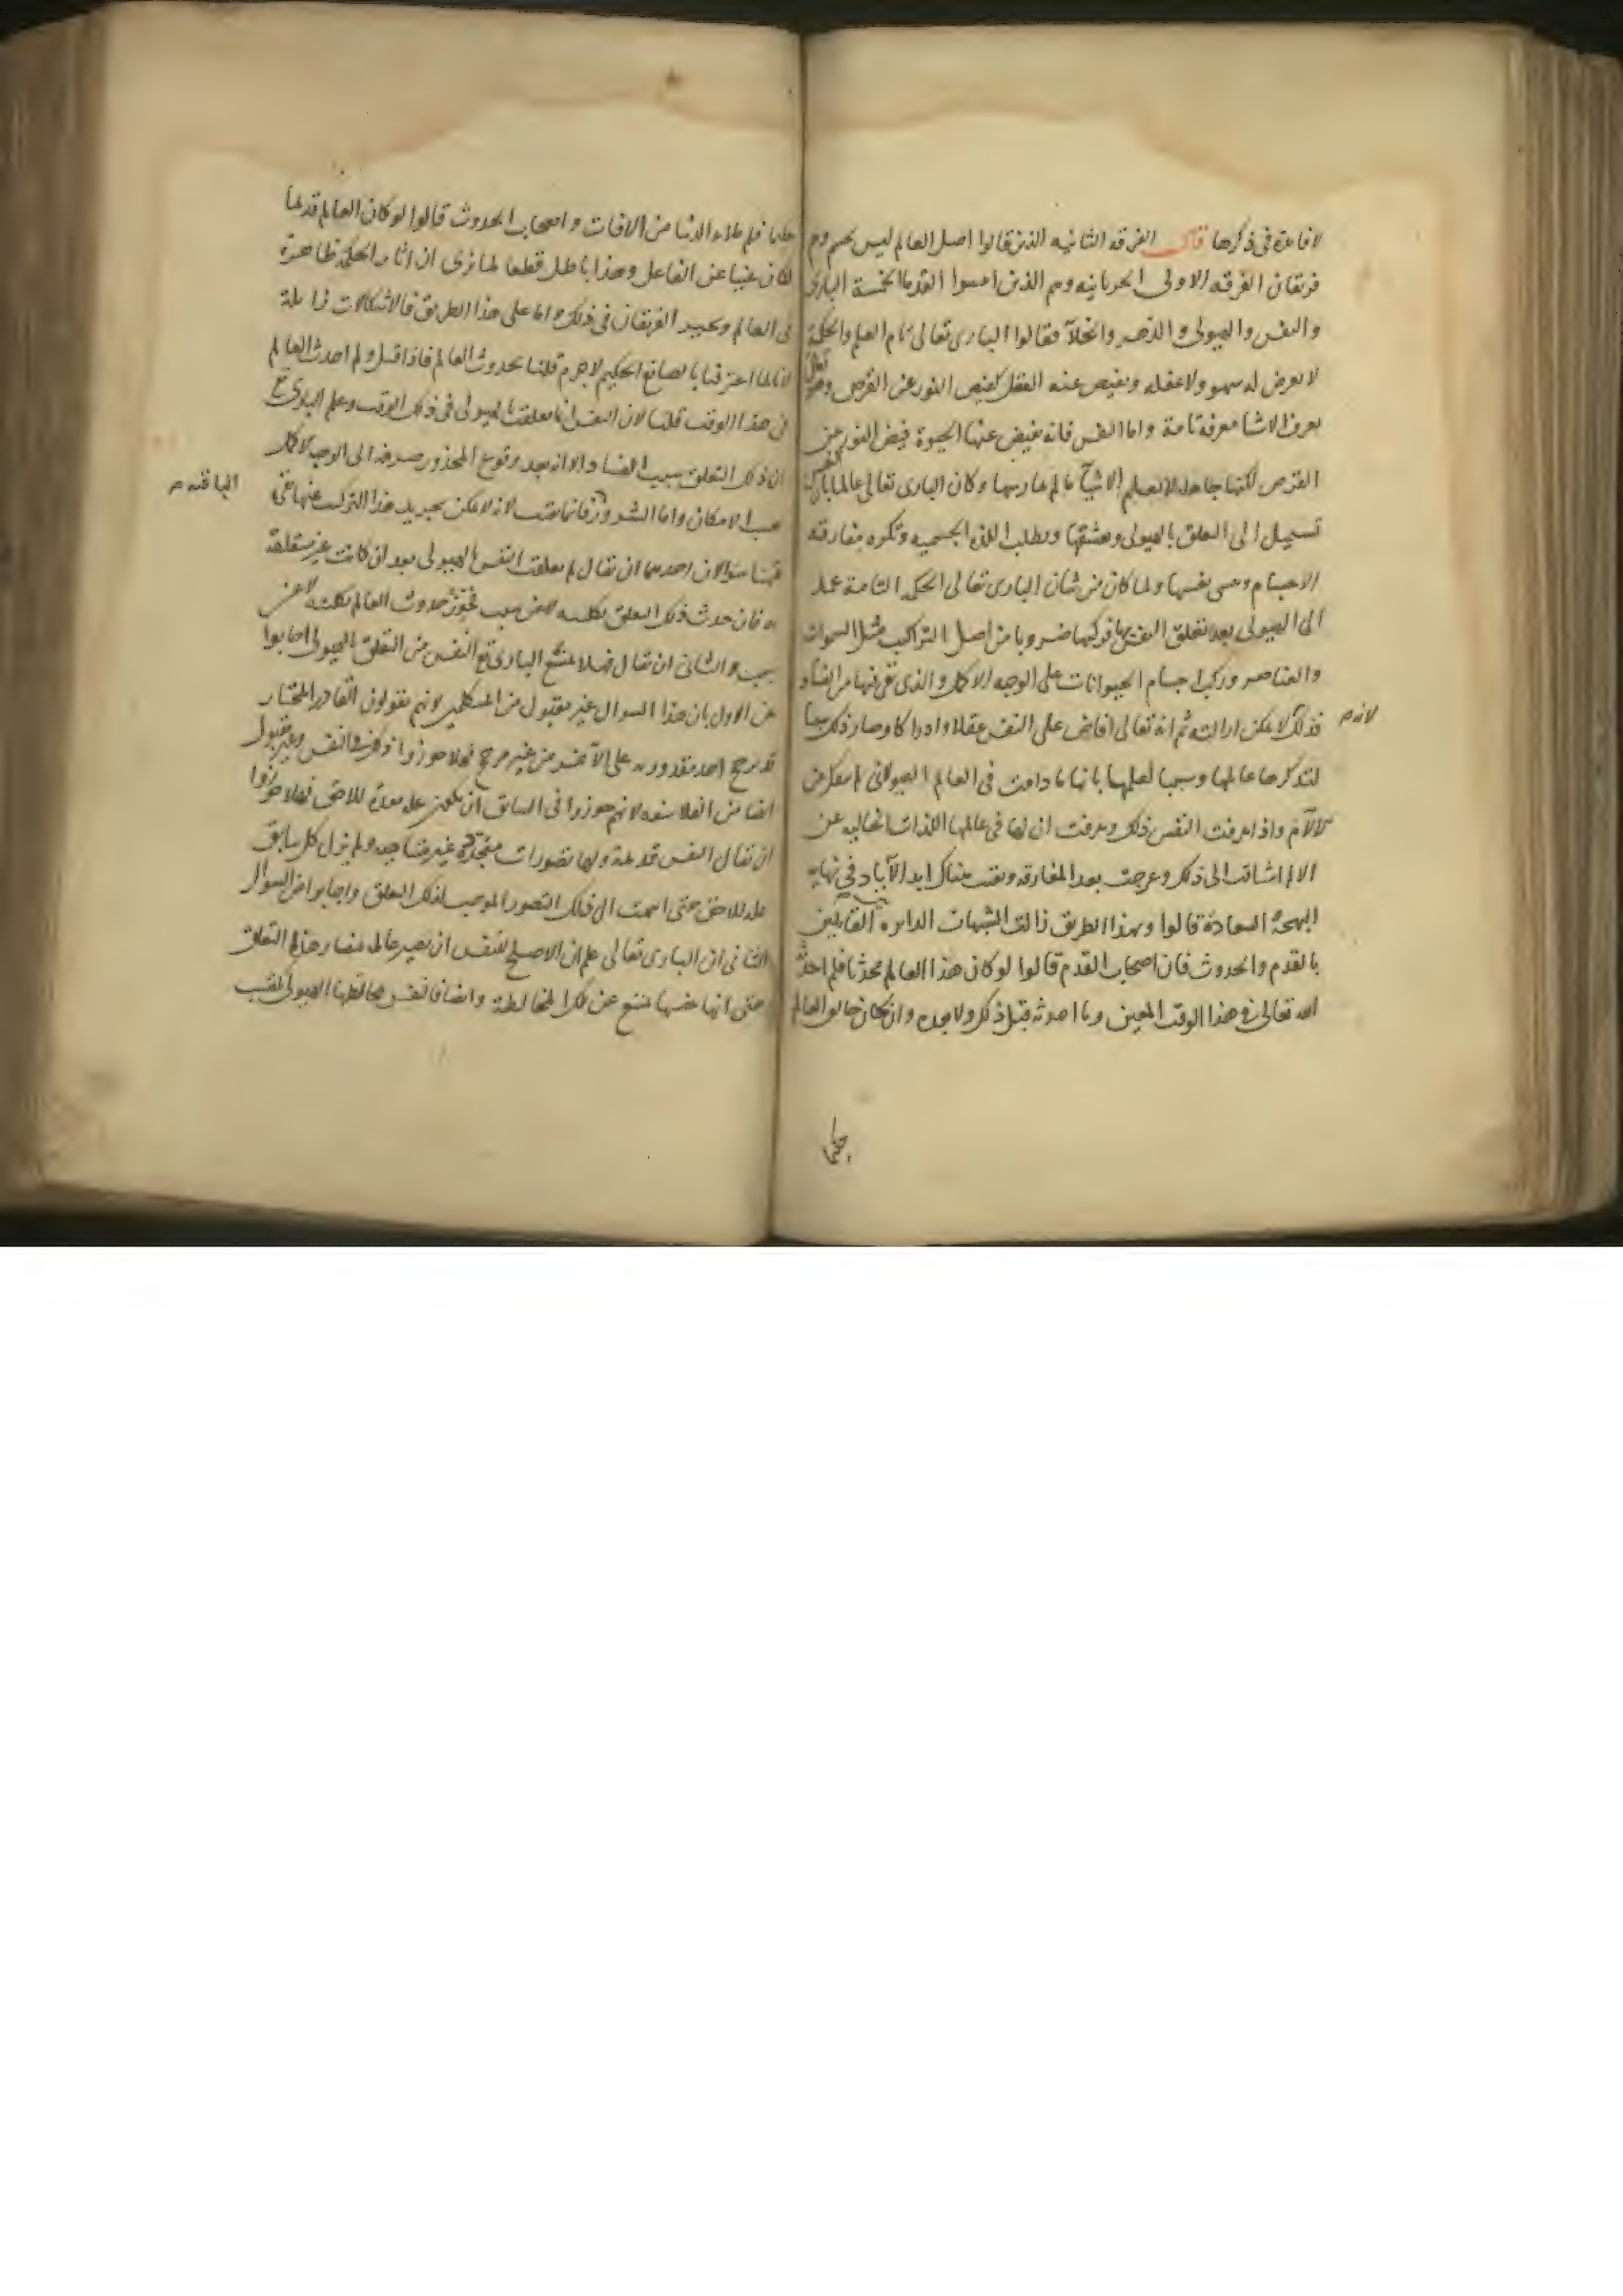 لا فائدة فى ذكرها قال الفرقة الثانيه الذين قالوا اصل العالم ليس بجسم وهم
فريقان الفرقه الاولى الحرنانيه وهم الذين اثبتوا القدما الخمسة البارى
والنفس والهيولى والدهر والخلآ فقالوا البارى تعالى تام العلم والحكمة
لا يعرض له سهو ولا غفله ويفيض عنه العقل كفيض النور عن القرص وهو تعالى
يعرف الاشيا معرفة تامة واما النفس فانه يفيض عنها الحيوة فيض النور عن
القرص لكنها جاهلة لا تعلم الاشيآ ما لم تمارسها وكان البارى تعالى عالما بان النفس
تميل الى التعلق بالهيولى وتعشقها وتطلب اللذة الجسميه وتكره مفارقة
الاجسام وتنسى نفسها ولما كان من شان البارى تعالى الحكمة التامة عمد
الى الهيولى بعد تعلق النفس بها فركبها ضروبا من اصل التراكيب مثل السموات
والعناصر وركب اجسام الحيوانات على الوجه الاكمل والذى بقى فيها من الفساد
فذلك لا يمكن ازالته ثم انه تعالى افاض على النفس عقلا وادراكا وصار ذلك سببا
لانه م
لتذكرها عالمها وسببا لعلمها بانها ما دامت فى العالم الهيولانى لم تنفك عن
الآلام واذا عرفت النفس ذلك وعرفت ان لها فى عالمها اللذات الخاليه عن
الالم اشتاقت الى ذلك وعرجت بعد المفارقه وبقيت هناك ابد الآباد فى نهاية
البهجة والسعادة قالوا وبهذا الطريق زالت الشبهات الدائره بين القايلين
بالقدم والحدوث فان اصحاب القدم قالوا لو كان هذا العالم محدثا فلم احدثه
الله تعالى فى هذا الوقت المعين وما احدثه قبل ذلك ولا بعده وان كان خالق العالم
حكيما
حكيما فلم ملاء الدنيا من الافات واصحاب الحدوث قالوا لو كان العالم قديما
لكان غنيا عن الفاعل وهذا باطل قطعا لما نرى ان اثار الحكمة ظاهرة
فى العالم وتحير الفريقان فى ذلك واما على هذا الطريق فالاشكالات زايلة
لانا لما اعترفنا بالصانع الحكيم لا جرم قلنا بحدوث العالم فاذا قيل ولم احدث العالم
فى هذا الوقت قلنا لان النفس انما تعلقت بالهيولى فى ذلك الوقت وعلم البارى تع
ان ذلك التعلق سبب الفساد الا انه بعد وقوع المحذور صرفه الى الوجه الاكمل
بحسب الامكان واما الشرور فانما بقيت لانه لا يمكن تجريد هذا التركيب عنها بقى
الباقيه م
ههنا سؤالان احدهما ان يقال لم تعلقت النفس بالهيولى بعد ان كانت غير متعلقة
به فان حدث ذلك التعلق بكليته لا عن سبب فجوز حدوث العالم بكليته لا عن
سبب والثانى ان يقال فهلا منع البارى تع النفس من التعلق بالهيولى اجابوا
عن الاول بان هذا السوال غير مقبول من المتكلمين لانهم يقولون القادر المختار
قد يرجح احد مقدوريه على الآخر من غير مرجح فهلا جوزوا ذلك فى النفس وغير مقبول
ايضا من الفلاسفه لانهم جوزوا فى السابق ان يكون علة معدة للاحق فهلا جوزوا
ان يقال النفس قديمة ولها تصورات متجددة غير متناهيه ولم يزل كل سابق
علة للاحق حتى انتهت الى ذلك التصور الموجب لذلك التعلق واجابوا عن السوال
الثانى ان البارى تعالى علم ان الاصلح للنفس ان تصير عالمة بمضار هذا التعلق
حتى انها بنفسها تمتنع عن تلك المخالطة وايضا فالنفس بمخالطتها الهيولى تكتسب